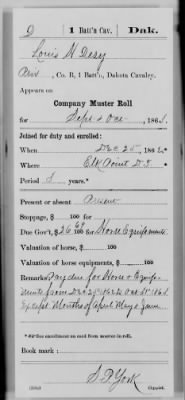 D | 1 Batt'n Cav. | Dak.
Louis H Desy
Priv, Co. B, 1 Batt'n, Dakota Cavalry.
Appears on
Company Muster Roll
for Sept & Oct, 186
Joined for duty and enrolled:
When Dec 25, 186
Where Elk Point D.T.
Period 3 years.*
Present or absent Present
Stoppage, $ 100 for
Due Gov't, $26 100 for Horse Equipments
Valuation of horse, $ 100
Valuation of horse equipments, $ 100
Remarks: Pay due for Horse & Equip-
ments from Dec 25" 1862 to Oct 31" 186
Except Months of April May & June
* See enrollment on card from muster-in roll.
Book mark:
S. P. York
Copyist.